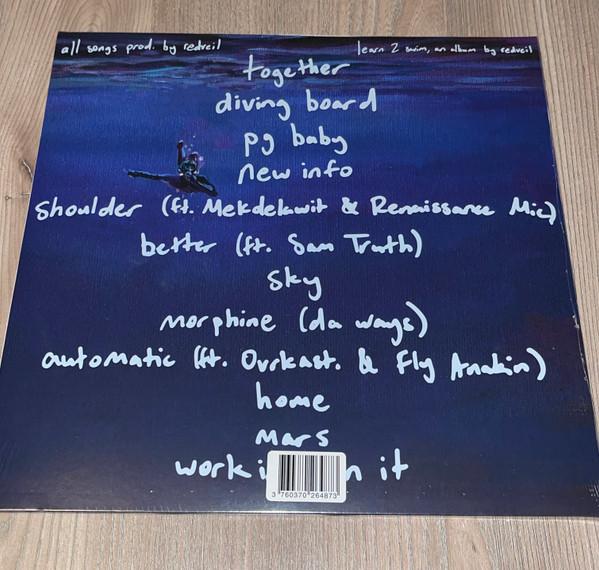 all songs prod. by redveil
learn 2 swim, an album by redveil
together
diving board
pg baby
new info
Shoulder (ft. Mekdelawit & Renaissance Mic)
better (ft. Sam Truth)
Sky
morphine (da ways)
automatic (ft. Ovrkast. & Fly Anakin)
home
mars
work it
3 760370 264873